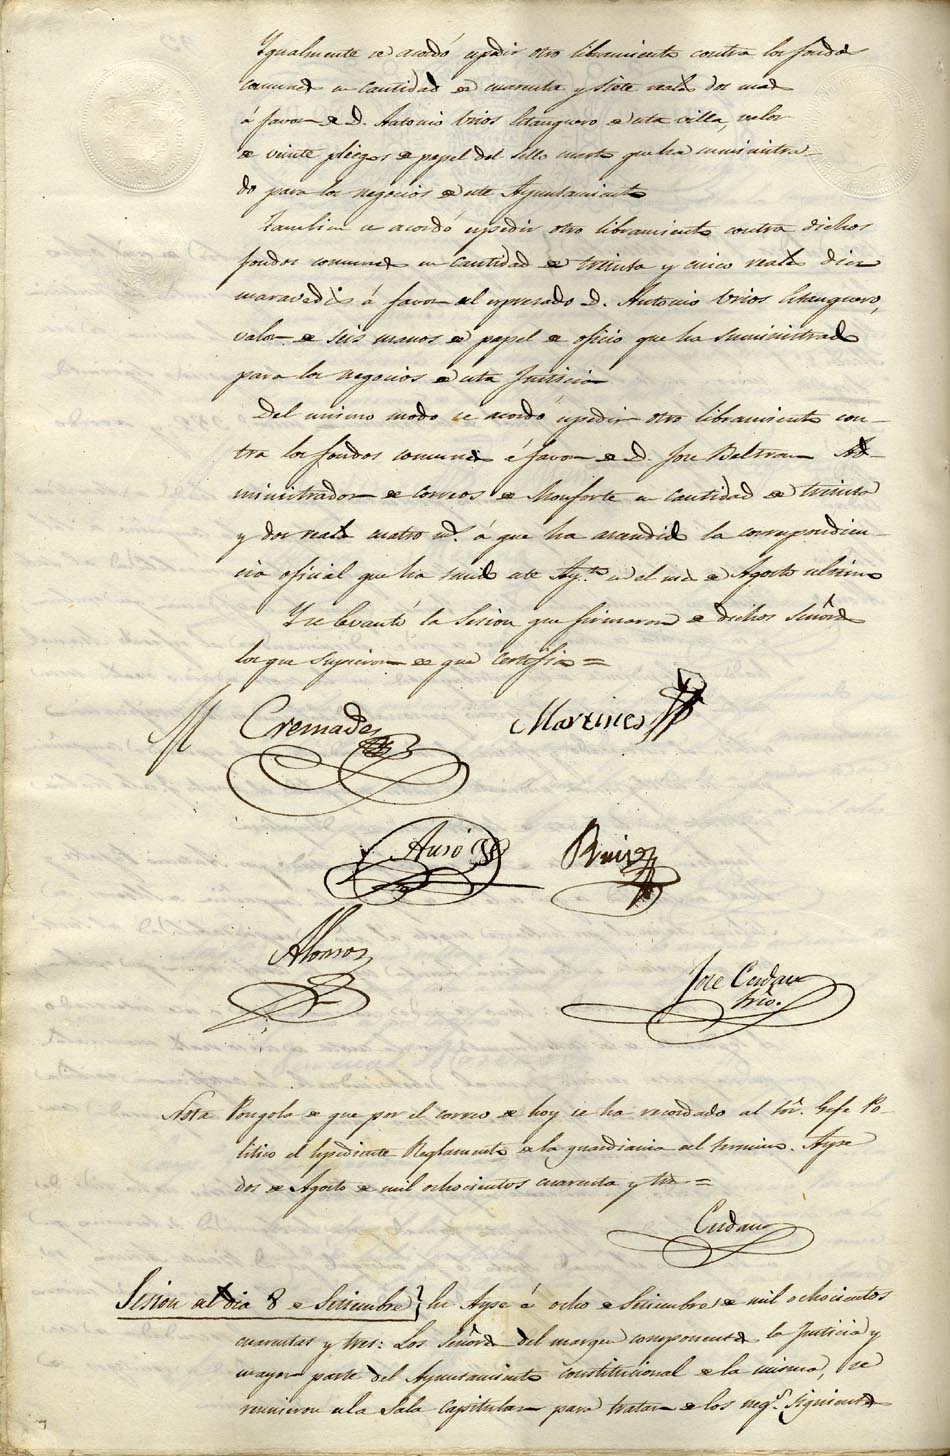 Igualmente se acordó espedir otro libramiento contra los fondos
comunes en cantidad de cuarenta y siete reales dos mas
á favor de D. Antonio Vrios Estanquero de esta villa, valor
de veinte pliegos de papel del sello cuarto que ha suministra-
do para los negocios de este Ayuntamiento
Tambien se acordó espedir otro libramiento contra dichos
fondos comunes en cantidad de treinta y cinco reales diez
maravedis á favor del espresado D. Antonio Vrios Estanquero,
valor de seis manos de papel de oficio que ha suministrado
para los negocios de esta Justicia
Del mismo modo se acordó espedir otro libramiento con-
tra los fondos comunes á favor de D. Jose Beltran Ad-
ministrador de Correos de Monforte en cantidad de treinta
y dos reales cuatro ms. á que ha asendido la correspondien-
cia oficial que ha tenido este Ayto. en el mes de Agosto ultimo
Y se levantó la Sesion que firmaron de dichos Señores
los que supieron de que certifico =
M Cremades Martines
Auso Bruiz
Alonso
Jose Cerdan
Srio.
Nota Pongola de que por el correo de hoy se ha recordado al Sor. Gefe Po-
litico el Espediente Reglamento de la guardiania del termino. Aspe
dos de Agosto de mil ochocientos cuarenta y tres =
Cerdan
Sesion del dia 8 de Setiembre En Aspe á ocho de Setiembre de mil ochocientos
cuarentas y tres: Los Señores del margen componentes la Justicia y
mayor parte del Ayuntamiento constitucional de la misma, se
reunieron en la Sala Capitular para tratar de los negs. siguientes